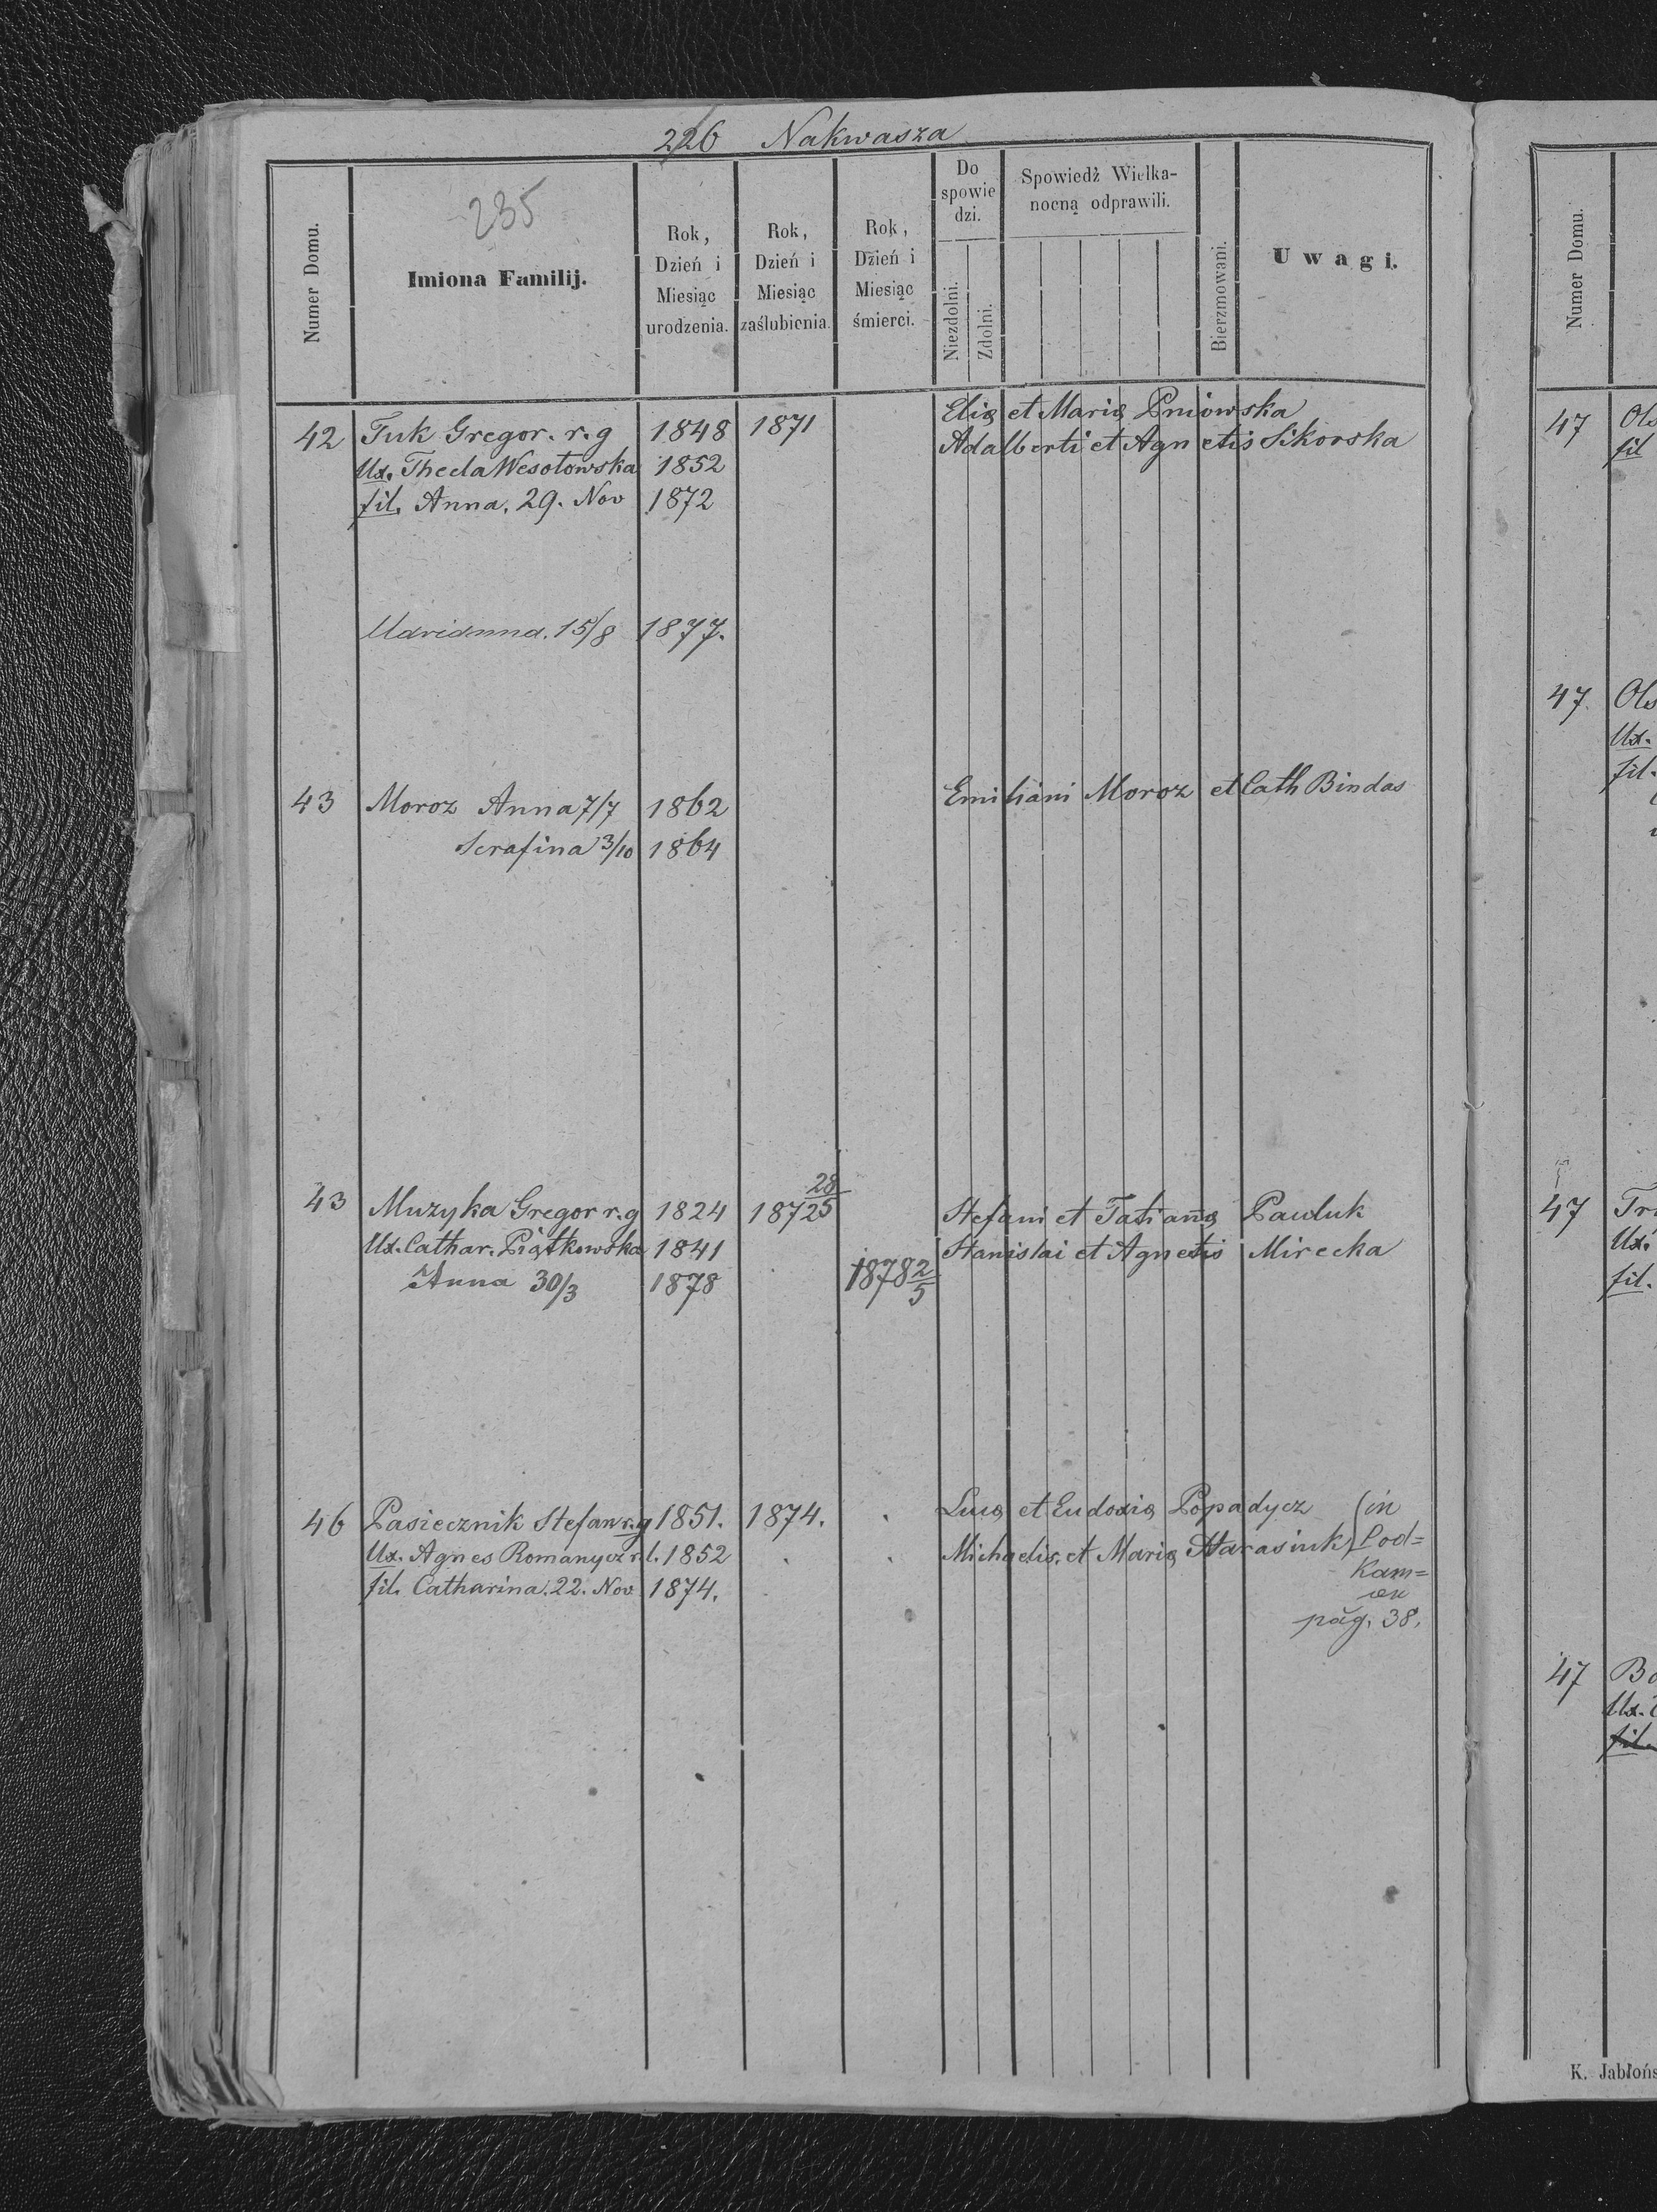 226 Nakwasza
235
Numer Domu.
Imiona Familij.
Rok, Dzień i Miesiąc urodzenia.
Rok, Dzień i Miesiąc zaślubienia.
Rok, Dzień i Miesiąc śmierci.
Do spowiedzi.
Niezdolni.
Zdolni.
Spowiedź Wielkanocną odprawili.
Bierzmowani.
Uwagi.
42 Tuk Gregor. r. g 1848 1871 Elię et Marię Pniowska
Ux. Thecla Wesołowska 1852 Adalberti et Agnetis Sikorska
fil. Anna. 29. Nov 1872
Marianna. 15/8 1877.
43 Moroz Anna 7/7 1862 Emiliani Moroz et Cath Bindas
Serafina 3/10 1864
43 Muzyka Gregor r. g 1824 1872 28/5 Stefani et Tatianę Pawluk
Ux. Cathar. Piątkowska 1841 Stanislai et Agnetis Mirecka
Anna 30/3 1878 1878 2/5
46 Pasiecznik Stefan r. g 1851. 1874. Lucę et Eudoxię Popadycz (in
Ux. Agnes Romanycz r. l. 1852 Michaelis. et Marię Harasiuk) Pod=
fil. Catharina. 22. Nov 1874. Kam=
en
pag. 38.
Numer Domu.
47 Ols
fil
47. Ols
Ux.
fil.
47 Tr
Ux.
fil.
47 Bo
Ux.
fil.
K. Jabłońs